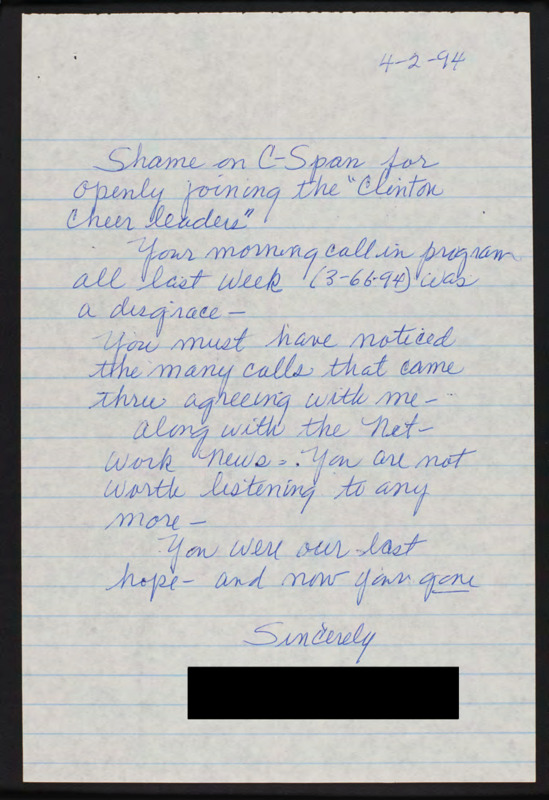 4-2-94
Shame on C-Span for
openly joining the "Clinton
Cheer leaders"
Your morning call in program
all last week (3-66-94) was
a disgrace -
You must have noticed
the many calls that came
thru agreeing with me -
along with the Net-
work News - You are not
worth listening to any
more -
You were our last
hope - and now your gone
Sincerely